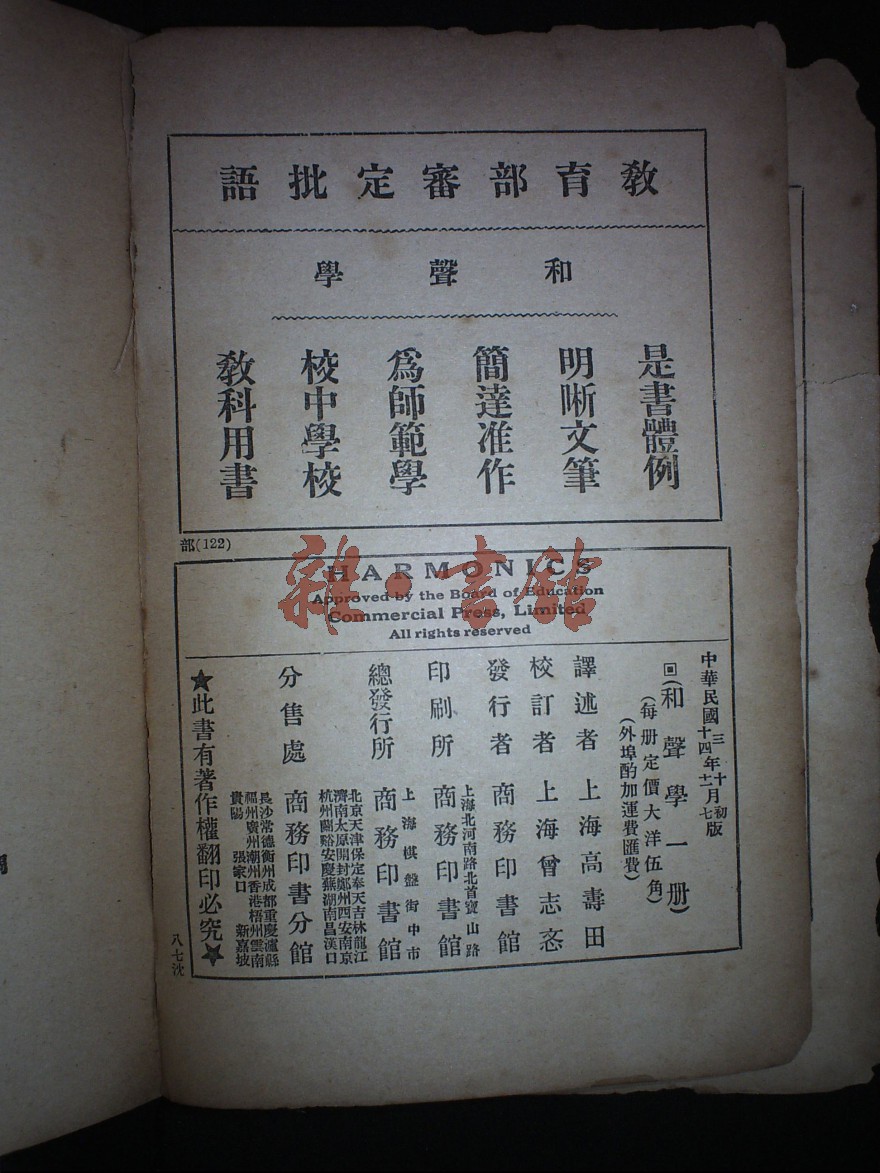 教育部審定批語
和聲學
是書體例
明晰文筆
簡達准作
爲師範學
校中學校
教科用書
部(122)
HARMONICS
Approved by the Board of Education
Commercial Press, Limited
All rights reserved
雜·書館
中華民國三年十月初版
十四年十二月七版
回(和聲學一册)
(每册定價大洋伍角)
(外埠酌加運費匯費)
譯述者 上海高壽田
校訂者 上海曾志忞
發行者 商務印書館
印刷所 上海北河南路北首寶山路 商務印書館
總發行所 上海棋盤街中市 商務印書館
分售處 商務印書分館
北京天津保定奉天吉林龍江
濟南太原開封鄭州西安南京
杭州蘭谿安慶蕪湖南昌漢口
長沙常德衡州成都重慶瀘縣
福州廣州潮州香港梧州雲南
貴陽 張家口 新嘉坡
★此書有著作權翻印必究★
八七沈